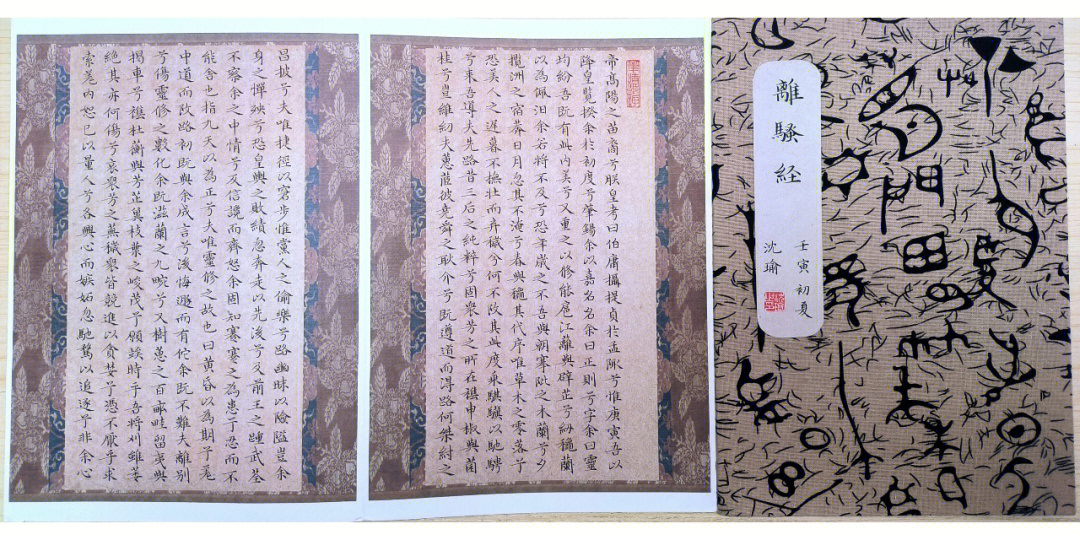 離騷経
壬寅初夏
沈瑜
帝高陽之苗裔兮朕皇考曰伯庸攝提貞於孟陬兮惟庚寅吾以
降皇覽揆余於初度兮肇錫余以嘉名名余曰正則兮字余曰靈
均紛吾既有此內美兮又重之以修能扈江離與辟芷兮紉穐蘭
以為佩汩余若將不及兮恐年歲之不吾與朝搴阰之木蘭兮夕
攬洲之宿莽日月忽其不淹兮春與穐其代序唯草木之零落兮
恐美人之遲暮不撫壯而弃穢兮何不改其此度乘騏驥以馳騁
兮来吾導夫先路昔三后之純粹兮固衆芳之所在雜申椒與菌
桂兮皇維紉夫蕙茝彼堯舜之耿介兮既遵道而淂路何桀紂之
昌披兮夫唯捷徑以窘步惟黨人之偷樂兮路幽昧以險隘豈余
身之憚殃兮恐皇輿之敗績忽奔走以先後兮及前王之踵武荃
不察余之中情兮反信讒而齊怒余固知謇謇之為患兮忍而不
能舍也指九天以為正兮夫唯靈修之故也曰黃昏以為期兮羌
中道而改路初既與余成言兮後悔遯而有佗余既不難夫離別
兮傷靈修之數化余既滋蘭之九畹兮又樹蕙之百畝畦留夷與
揭車兮雜杜蘅與芳芷冀枝葉之峻茂兮願竢時乎吾將刈雖萎
絕其亦何傷兮哀衆芳之蕪穢衆皆競進以貪婪兮憑不猒乎求
索羌內恕己以量人兮各興心而嫉妒忽馳騖以追逐兮非余心